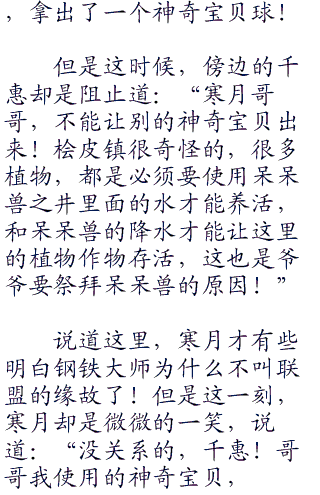 ，拿出了一个神奇宝贝球！
但是这时候，傍边的千
惠却是阻止道：“寒月哥
哥，不能让别的神奇宝贝出
来！桧皮镇很奇怪的，很多
植物，都是必须要使用呆呆
兽之井里面的水才能养活，
和呆呆兽的降水才能让这里
的植物作物存活，这也是爷
爷要祭拜呆呆兽的原因！”
说道这里，寒月才有些
明白钢铁大师为什么不叫联
盟的缘故了！但是这一刻，
寒月却是微微的一笑，说
道：“没关系的，千惠！哥
哥我使用的神奇宝贝，